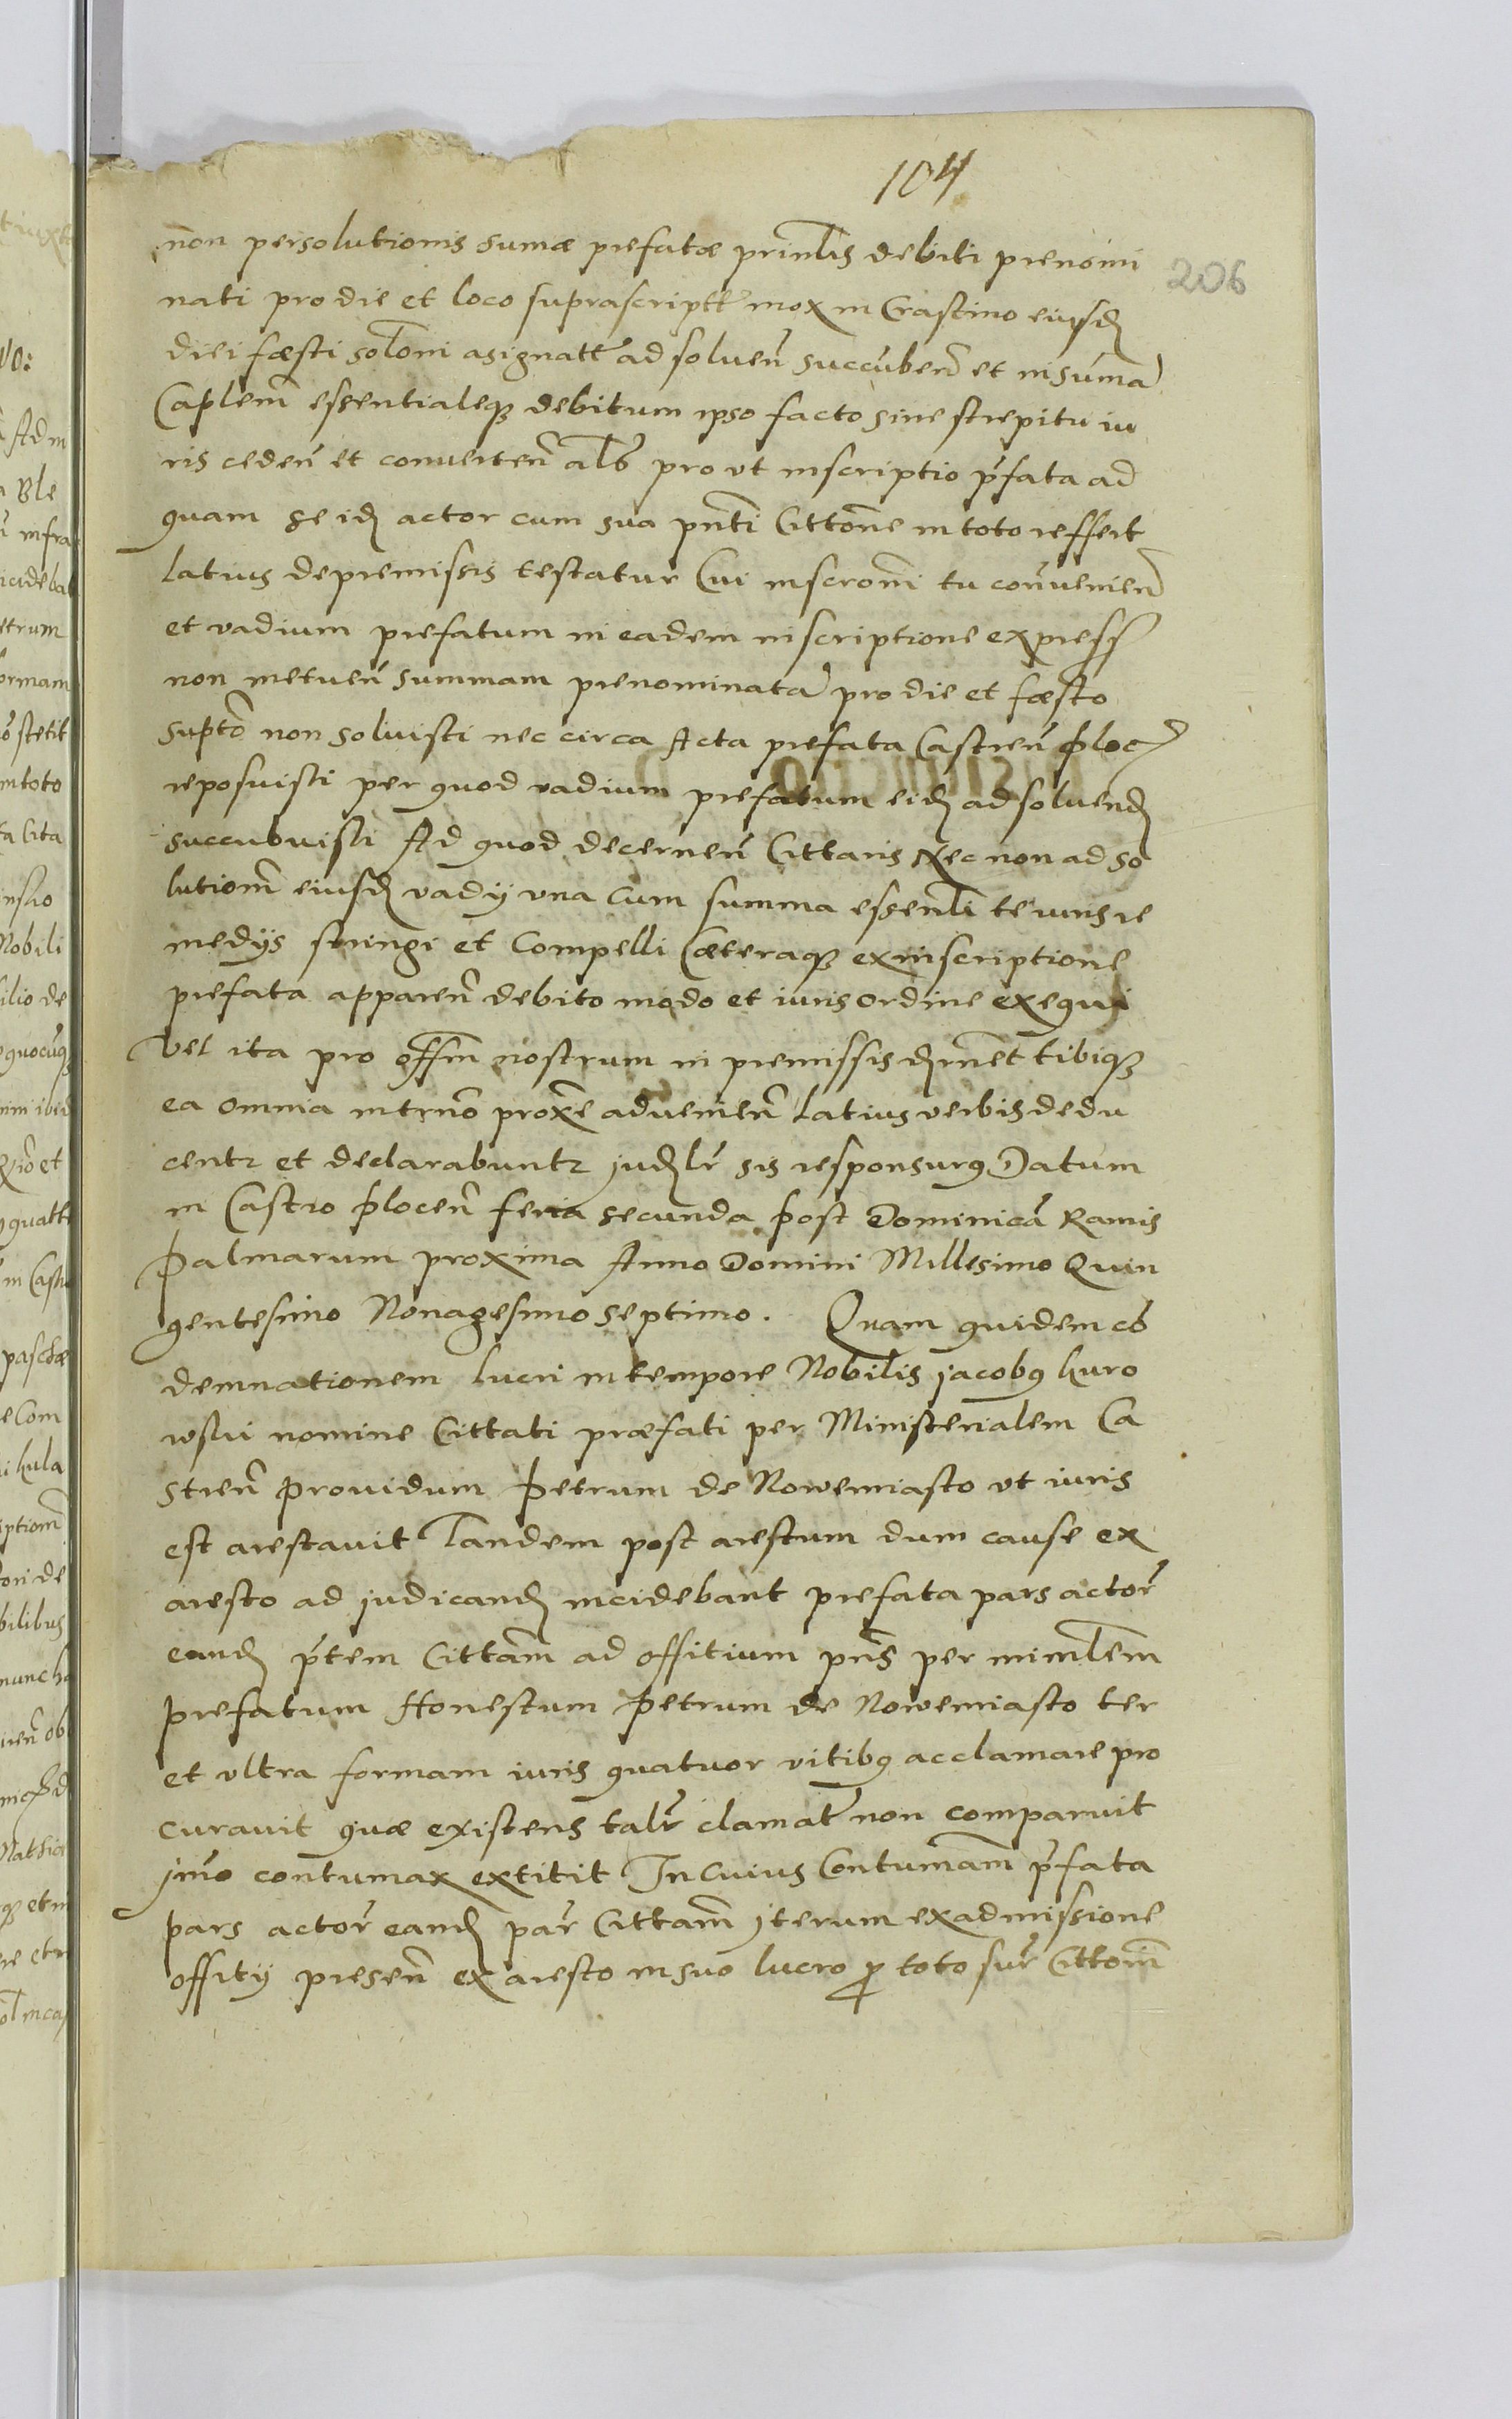 104
206
non persolutionis sumæ prefatæ prinlis debiti prenomi
nati pro die et loco suprascriptt mox in Crastino eiusd
diei fæsti solomi asignatt ad soluen succuben et in suma
Caplem essentialeq debitum ipso facto sine strepitu iu
ris ceden et conuerten als pro ut inscriptio pfata ad
quam se id actor cum sua pnti Cittone in toto reffert
latius de premissis testatur Cui inscrom tu conuenien
et vadium prefatum in eadem inscriptione express
non metuen summam prenominata pro die et fæsto
supto non soluisti nec circa Acta prefata Castren ploc
reposuisti per quod vadium prefatum eid ad soluend
succubuisti Ad quod decernen Cittaris Nec non ad so
lutiom eiusd vadij una cum summa essenli te iuris re
medijs stringi et Compelli Cæteraq ex inscriptione
prefata apparen debito modo et iuris ordine exequi
vel ita pro offm nostrum in premissis dnet tibiq
ea omnia in trno proxe aduenien latius verbis dedu
centr et declarabuntr judlr sis responsurus Datum
in Castro plocen feria secunda post Dominica Ramis
Palmarum proxima Anno Domini Millesimo Quin
gentesimo Nonagesimo septimo. Quam quidem co
demnationem lucri in tempore Nobilis jacobus kuro
wski nomine Cittati præfati per Ministerialem Ca
stren prouidum Petrum de Nowemiasto ut iuris
est arestauit Tandem post arestum dum cause ex
aresto ad judicand incidebant prefata pars actor
eand ptem Cittam ad offitium pns per minlem
prefatum Honestum Petrum de Nowemiasto ter
et ultra formam iuris quatuor vitibus acclamare pro
curauit quæ existens talr clamat non comparuit
jmo contumax extitit In cuius Contumam pfata
pars actor eand par Cittam jterum ex admissione
offitij presen ex aresto in suo lucro p toto sur Cittom